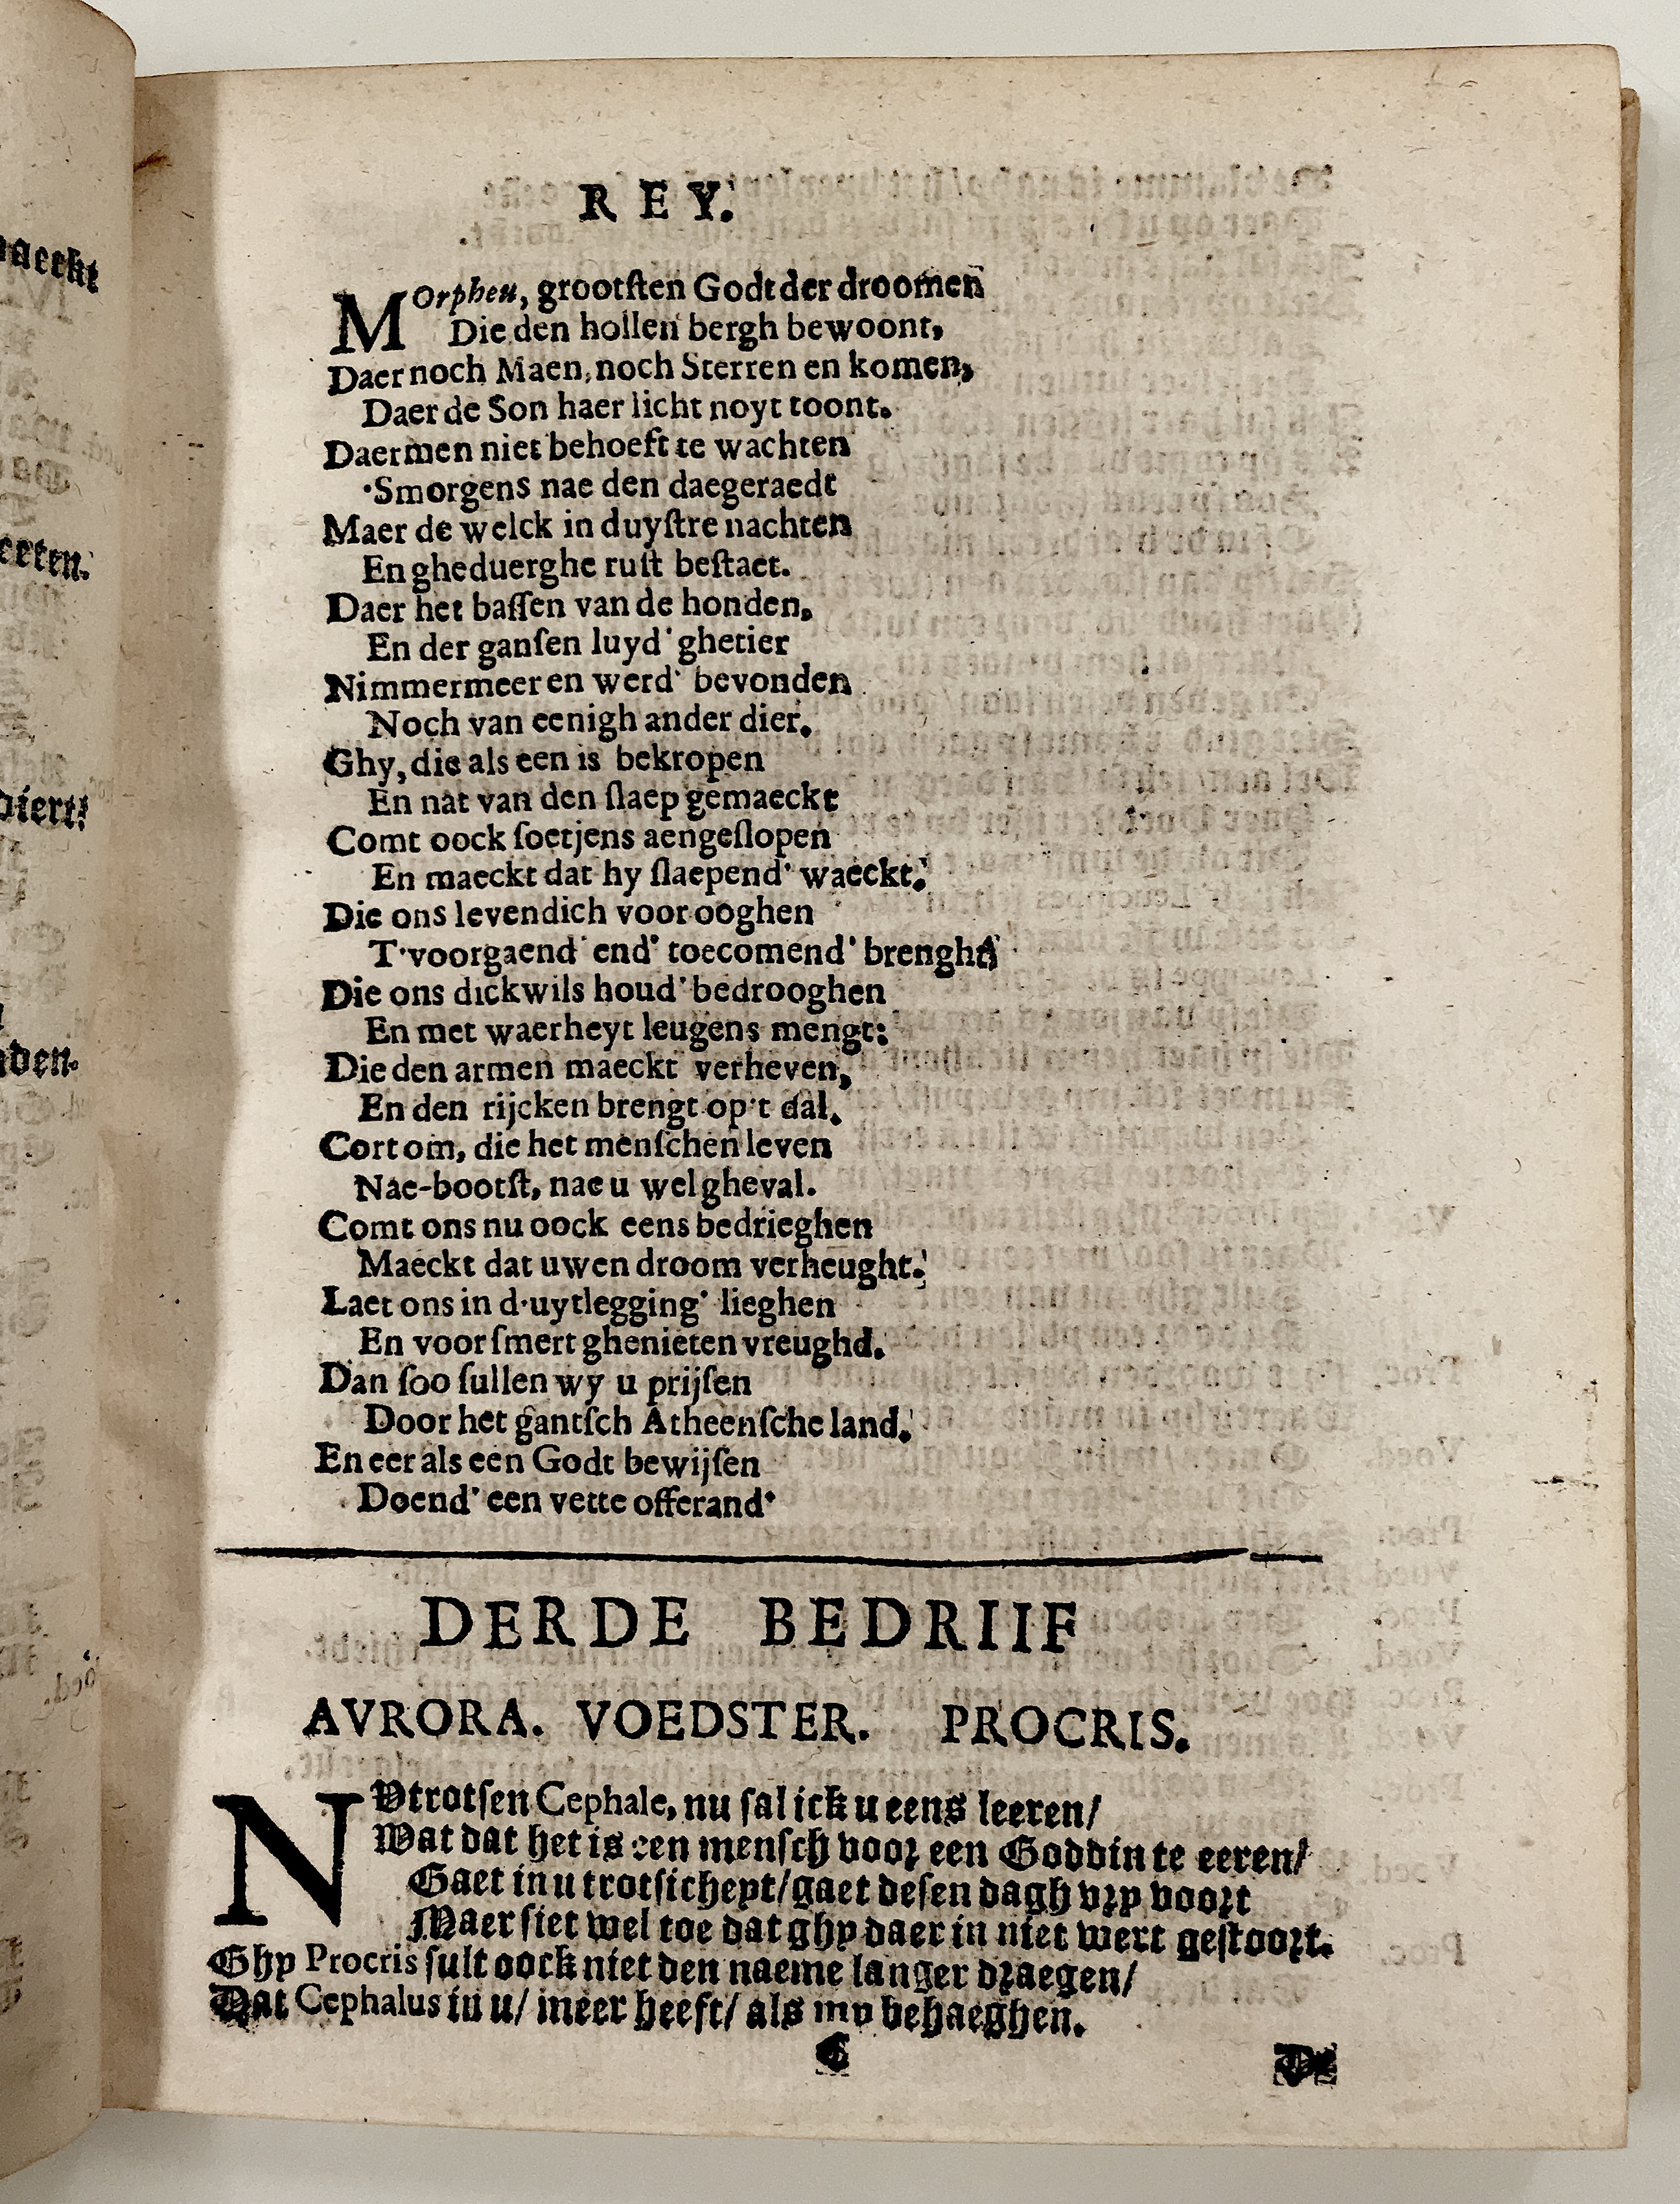 naeckt
eeten.
diert!
den.
REY.
MOrpheu, grootſten Godt der droomen
Die den hollen bergh bewoont,
Daer noch Maen, noch Sterren en komen,
Daer de Son haer licht noyt toont.
Daermen niet behoeft te wachten
'Smorgens nae den daegeraedt
Maer de welck in duyſtre nachten
En gheduerghe ruſt beſtaet.
Daer het baſſen van de honden,
En der ganſen luyd' ghetier
Nimmermeer en werd' bevonden
Noch van eenigh ander dier.
Ghy, die als een is bekropen
En nat van den ſlaep gemaeckt
Comt oock ſoetjens aengeſlopen
En maeckt dat hy ſlaepend' waeckt.
Die ons levendich voor ooghen
T'voorgaend' end' toecomend' brenght
Die ons dickwils houd' bedrooghen
En met waerheyt leugens mengt:
Die den armen maeckt verheven,
En den rijcken brengt op't dal.
Cort om, die het menſchen leven
Nae-bootſt, nae u welgheval.
Comt ons nu oock eens bedrieghen
Maeckt dat uwen droom verheught.
Laet ons in d'uytlegging' lieghen
En voor ſmert ghenieten vreughd.
Dan ſoo ſullen wy u prijſen
Door het gantſch Atheenſche land.
En eer als een Godt bewijſen
Doend' een vette offerand'
DERDE BEDRIIF
AVRORA. VOEDSTER. PROCRIS.
NVtrotſen Cephale, nu ſal ick u eens leeren/
Wat dat het is een menſch voor een Goddin te eeren/
Gaet in u trotſicheyt/gaet deſen dagh vry voort
Maer ſiet wel toe dat ghy daer in niet wert geſtoort.
Ghy Procris ſult oock niet den naeme langer draegen/
Dat Cephalus in u/ meer heeft/ als my behaeghen.
C